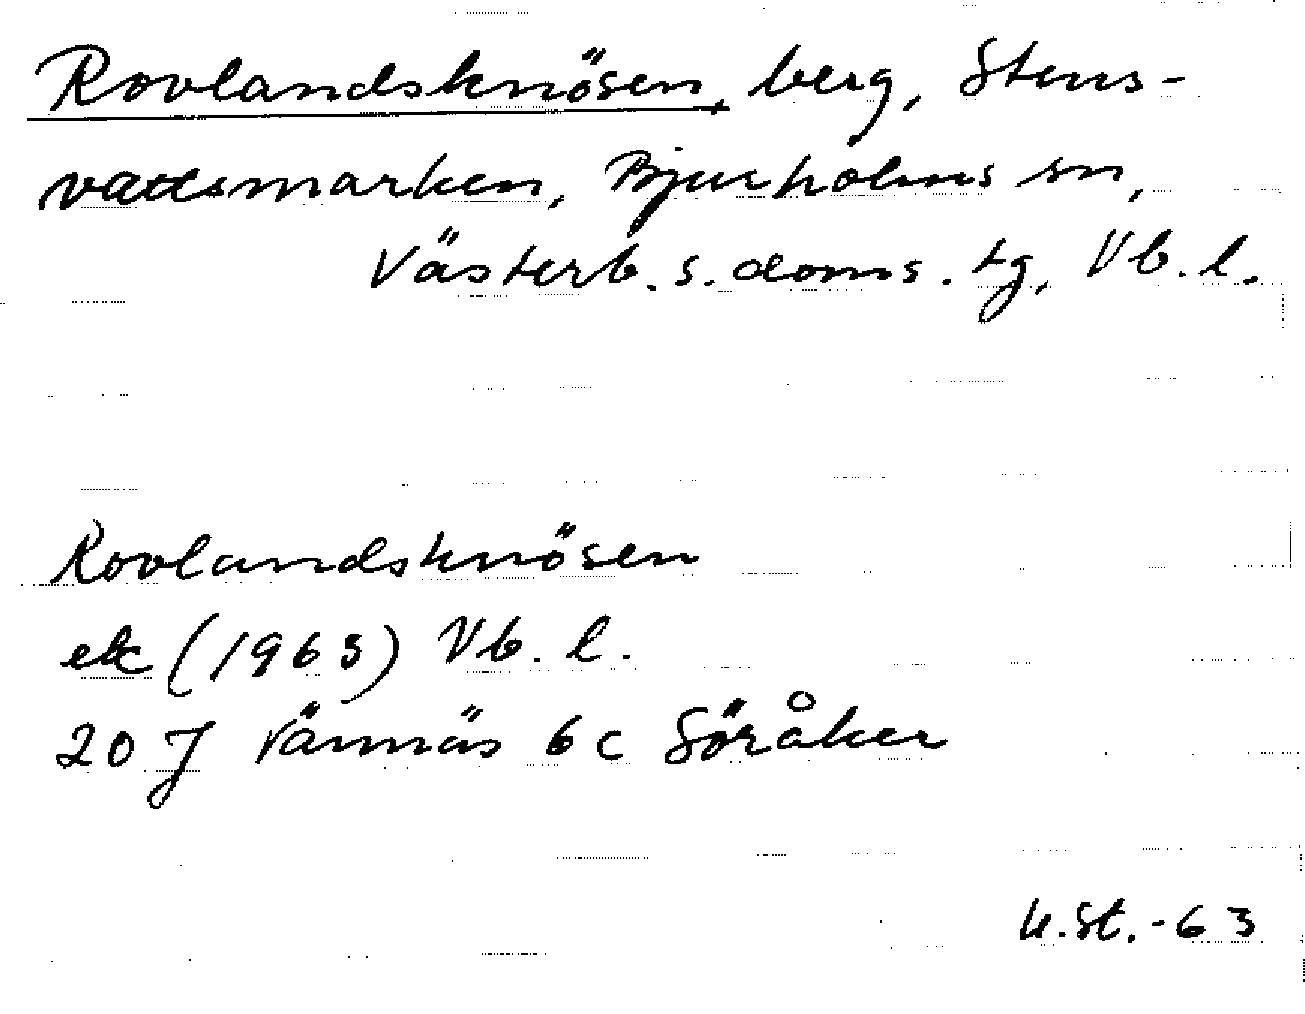 Rovlandsknösen, berg, Stens-
vattsmarken, Bjurholms sn,
Västerb. s. doms. tg, Vb. l.
Rovlandsknösen
ek (1963) Vb. l.
20 J Vännäs 6 c Söråker
U.St.-63